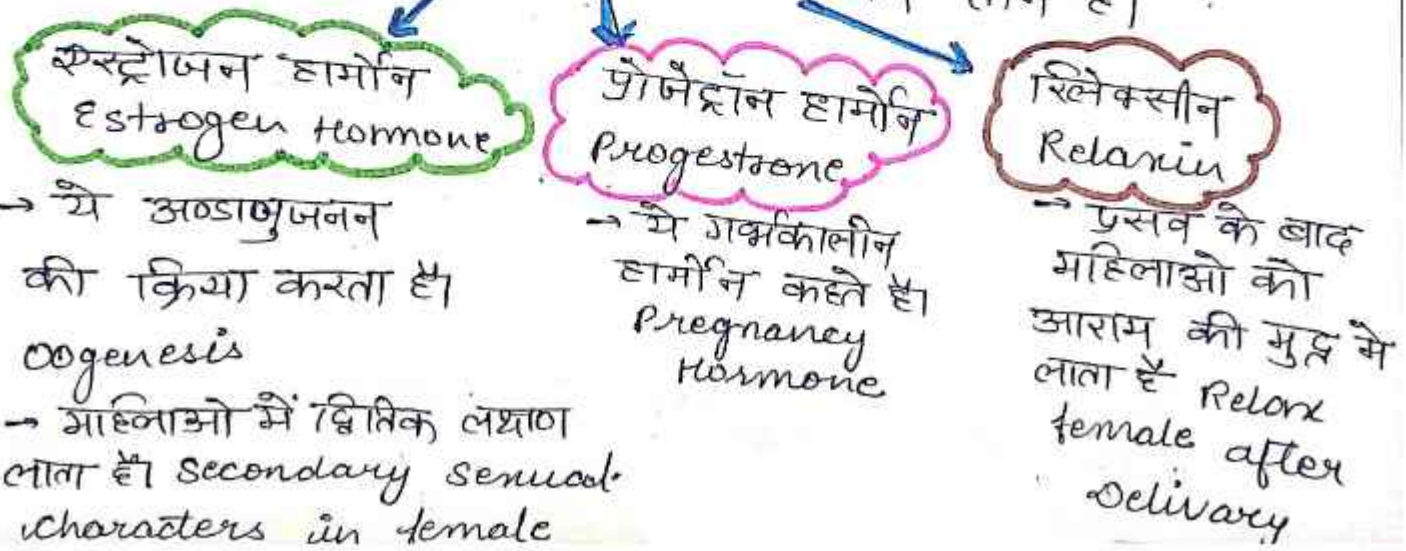 एस्ट्रोजन हार्मोन
Estrogen Hormone
→ ये अण्डाणुजनन
की क्रिया करता है।
oogenesis
→ माहिलाओ में द्वितिक लक्षाण
लाता है। Secondary sexual
characters in female
प्रोजेस्ट्रॉन हार्मोन
Progestrone
→ ये गर्भकालीन
हार्मोन कहते है।
Pregnancy
Hormone
रिलेक्सीन
Relaxin
→ प्रसव के बाद
महिलाओ को
आराम की मुद्र मे
लाता है Relax
female after
Delivary